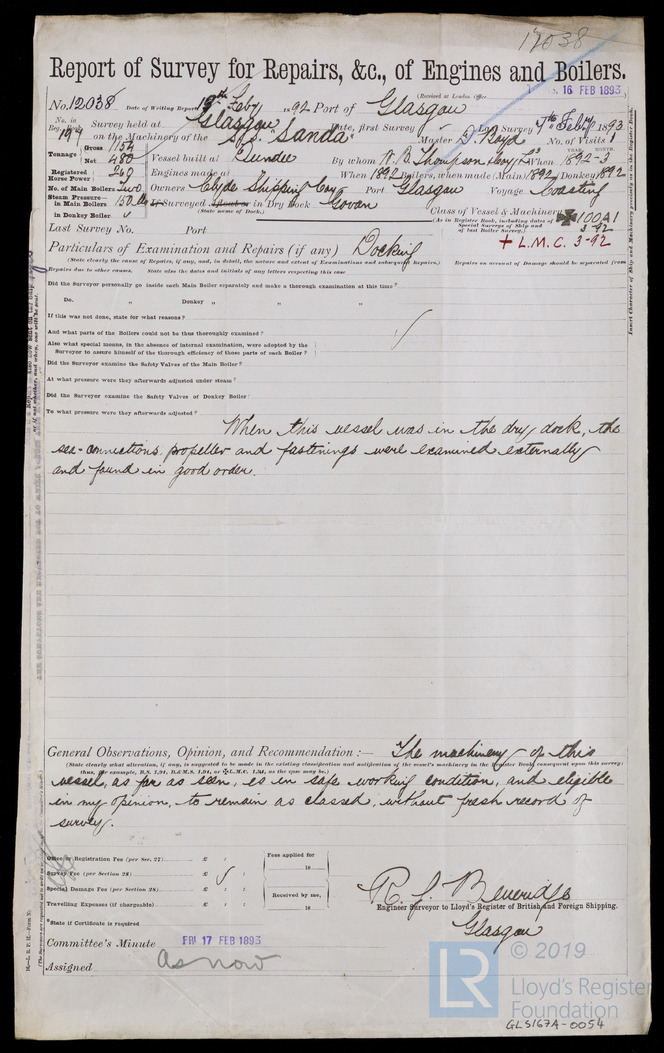 12038
Report of Survey for Repairs, &c., of Engines and Boilers.
(Received at London Office
16 FEB 1893
No. 12038 Date of Writing Report Feby 1892 Port of Glasgow
No. in Reg. Book 197 Survey held at Glasgow Date, first Survey Last Survey 7th Feby 1893
on the Machinery of the S.S. "Sanda" Master D. Boyd No. of Visits 1
Tonnage Gross 1154
Net 480
Vessel built at Dundee By whom W. B. Thompson When 1892-3
YEAR. MONTH.
Registered Horse Power 260 Engines made at When 1892 Boilers, when made (Main) 1892 Donkey 1892
No. of Main Boilers Two Owners Clyde Shipping Coy Port Glasgow Voyage Coasting
Steam Pressure— in Main Boilers 150 lb If Surveyed Afloat or in Dry Dock Govan
(State name of Dock.)
in Donkey Boiler
Class of Vessel & Machinery 100A1
(As in Register Book, including dates of Special Surveys of Ship and of last Boiler Survey.) 3-92
Last Survey No. Port
+ L.M.C. 3-92
Particulars of Examination and Repairs (if any) Docking
(State clearly the cause of Repairs, if any, and, in detail, the nature and extent of Examinations and subsequent Repairs.) Repairs on account of Damage should be separated from
Repairs due to other causes. State also the dates and initials of any letters respecting this case
Did the Surveyor personally go inside each Main Boiler separately and make a thorough examination at this time?
Do. „ Donkey „ „ „
If this was not done, state for what reasons?
And what parts of the Boilers could not be thus thoroughly examined?
Also what special means, in the absence of internal examination, were adopted by the
Surveyor to assure himself of the thorough efficiency of those parts of each Boiler?
Did the Surveyor examine the Safety Valves of the Main Boiler?
At what pressure were they afterwards adjusted under steam?
Did the Surveyor examine the Safety Valves of Donkey Boiler
To what pressure were they afterwards adjusted?
When this vessel was in the dry dock, the
sea-connections, propeller and fastenings were examined externally
and found in good order.
General Observations, Opinion, and Recommendation :— The machinery of this
(State clearly what alteration, if any, is suggested to be made in the existing classification and notification of the vessel's machinery in the Register Book consequent upon this survey;
thus, for example, B.S. 1,91, B.&M.S. 1,91, or ✠L.M.C. 1,91, as the case may be.)
vessel, as far as seen, is in safe working condition, and eligible
in my opinion, to remain as classed, without fresh record of
survey.
Office or Registration Fee (per Sec. 27) £ : :
Survey Fee (per Section 28) £ : :
Special Damage Fee (per Section 28) £ : :
Travelling Expenses (if chargeable) £ : :
Fees applied for
18
Received by me,
18
*State if Certificate is required
R. J. Beveridge
Engineer Surveyor to Lloyd's Register of British and Foreign Shipping.
Glasgow
Committee's Minute FRI 17 FEB 1893
Assigned as now
© 2019
LR
Lloyd's Register
Foundation
GLS167A-0054
Insert Character of Ship and Machinery precisely as in the Register Book.